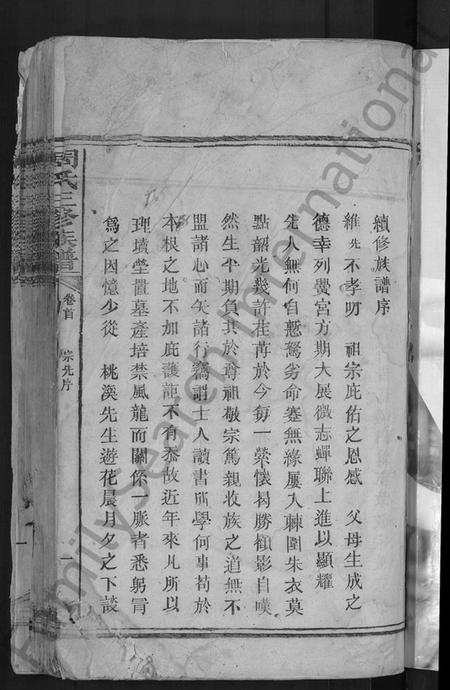 續修族譜序
維先不孝叨 祖宗庇佑之恩感 父母生成之
德幸列黌宮方期大展微志蟬聯上進以顯耀
先人無何自慙駑劣命蹇無緣屢入棘圍朱衣莫
點韶光幾許荏苒於今每一縈懷曷勝顧影自嘆
然生平期負其於尊祖敬宗篤親收族之道無不
盟諸心而矢諸行竊謂士人讀書所學何事苟於
本根之地不加庇護詎不有忝故近年來凡所以
理墳塋置墓產培禁風龍而關係一脈者悉躬冐
爲之因憶少從 桃溪先生遊花晨月夕之下談
周氏三修族譜
卷首
宗先序
一
FamilySearch International